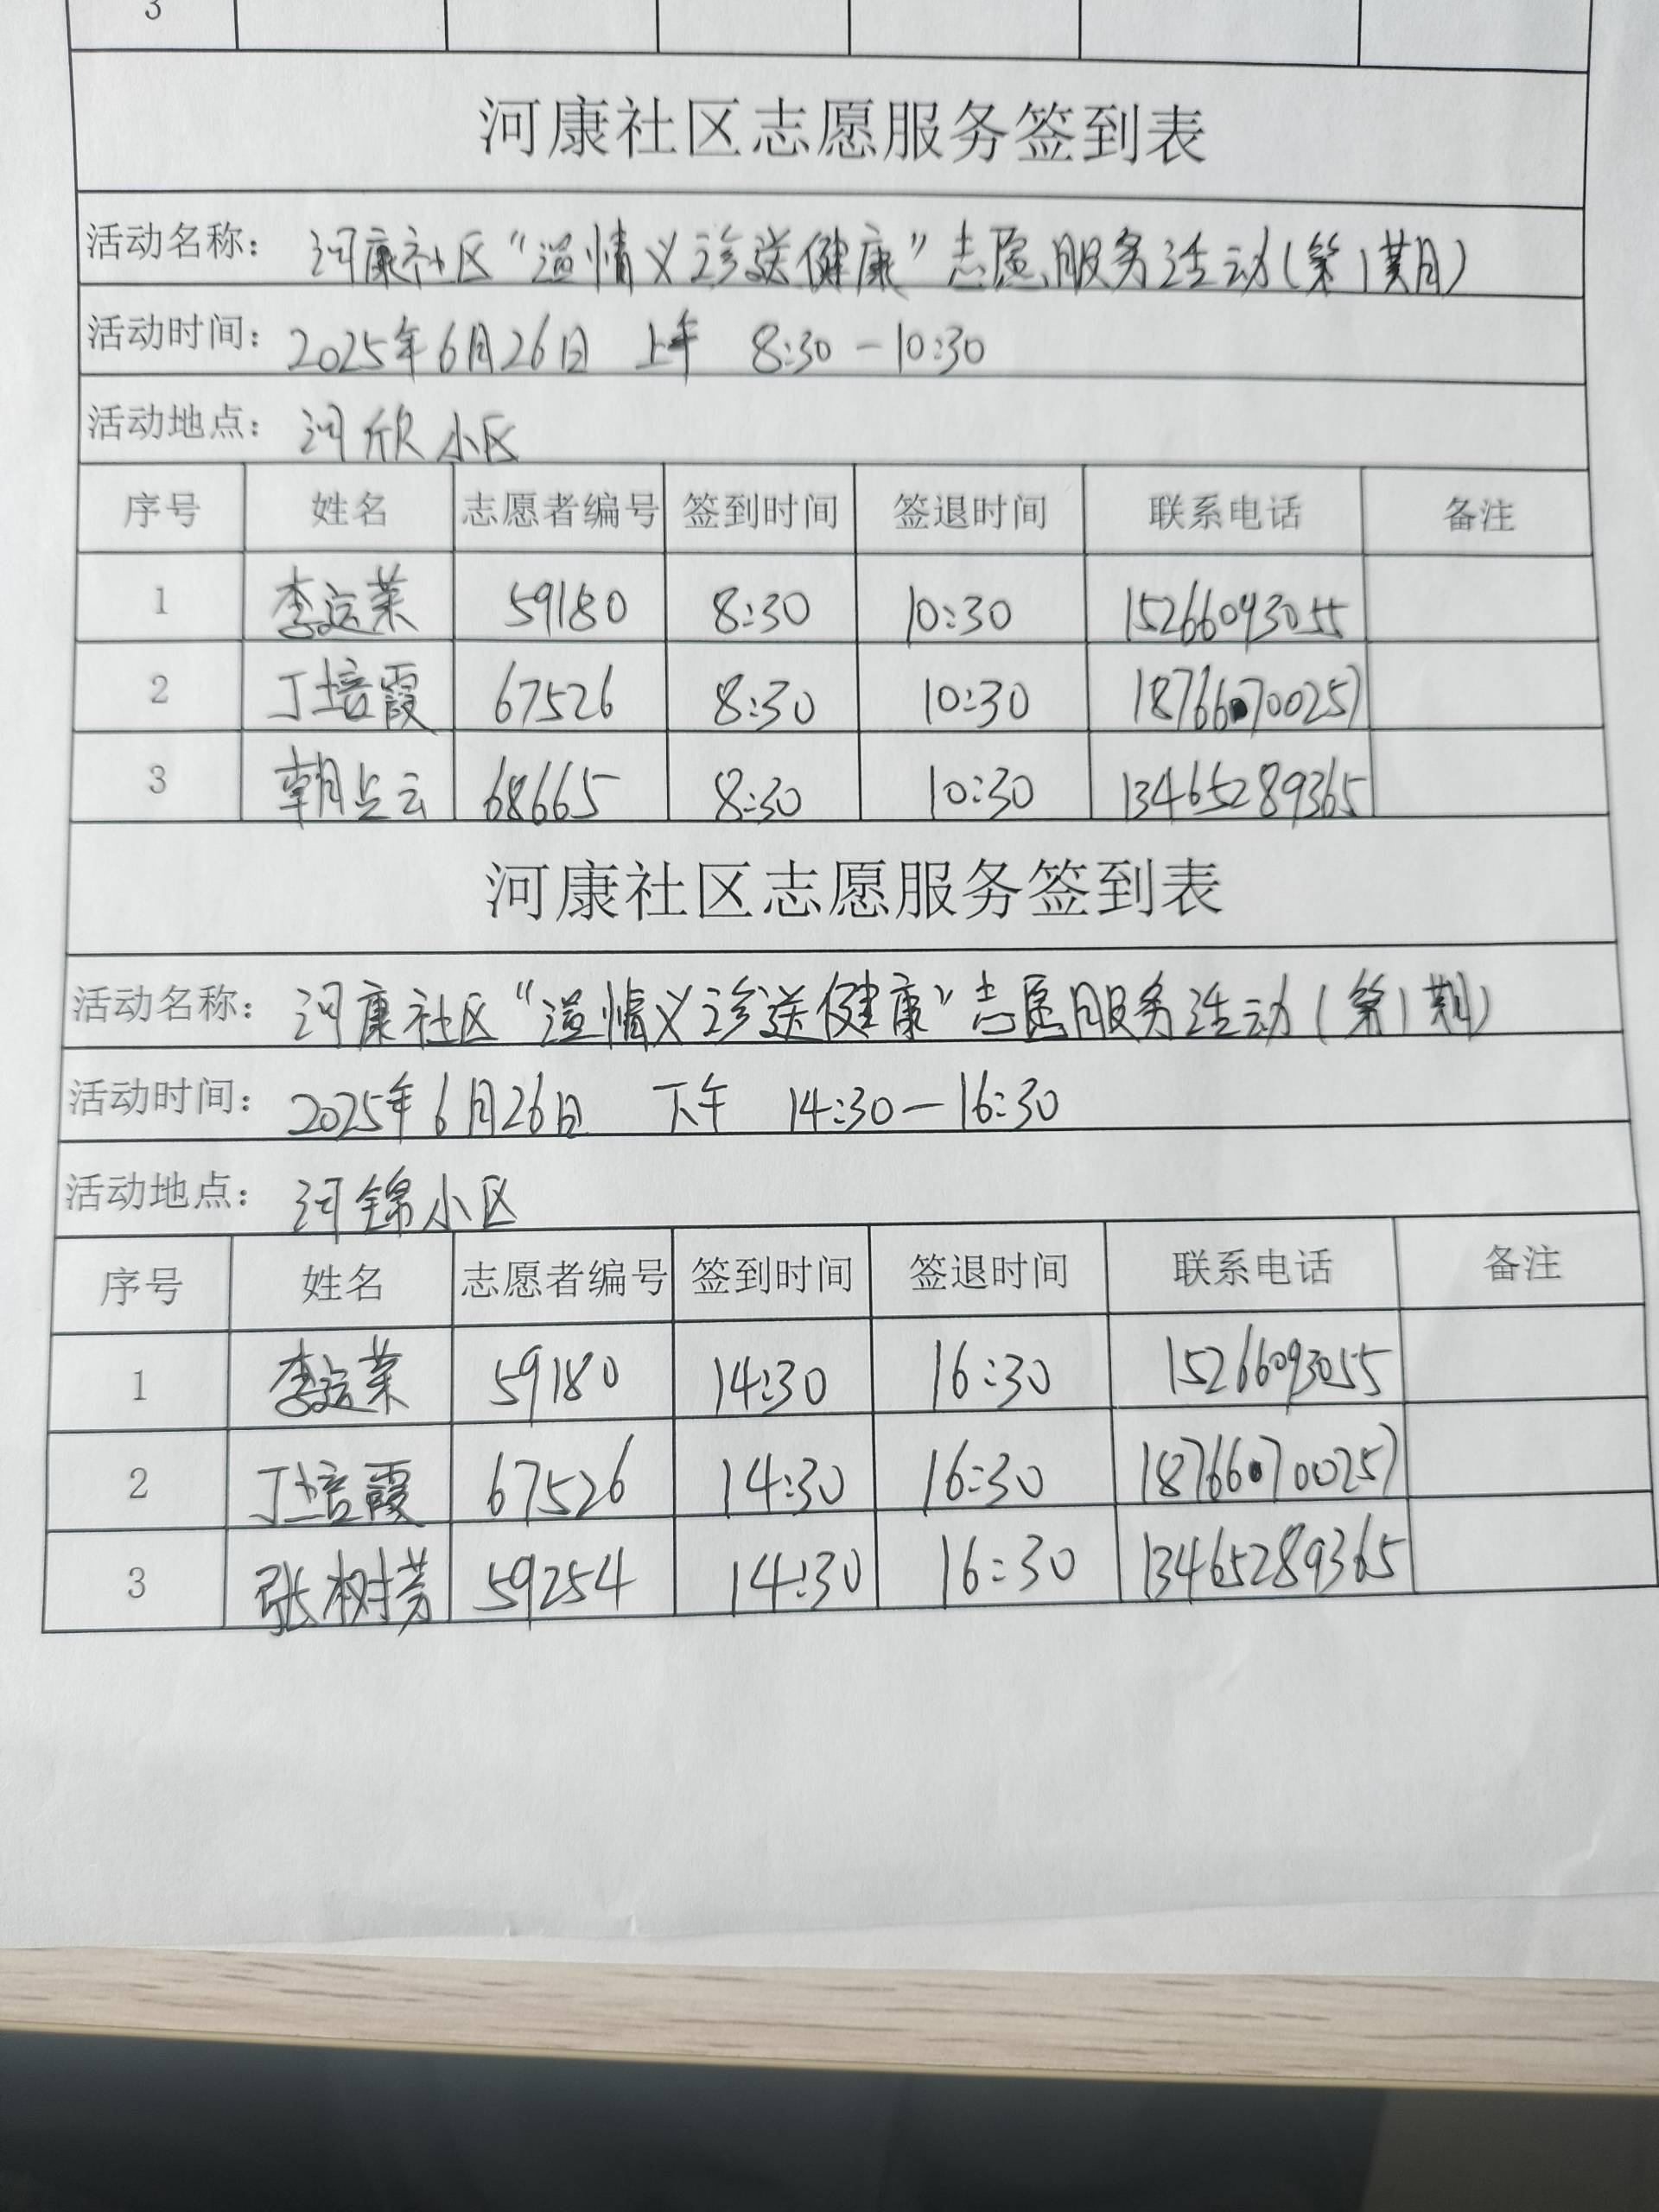 3
河康社区志愿服务签到表
活动名称： 河康社区“溢情义诊送健康”志愿服务活动(第1期)
活动时间： 2025年6月26日 上午 8:30—10:30
活动地点： 河欣小区
序号 姓名 志愿者编号 签到时间 签退时间 联系电话 备注
1 李运荣 59180 8:30 10:30 15266093055
2 丁培霞 67526 8:30 10:30 18766070025
3 68665 8:30 10:30 13465289365
河康社区志愿服务签到表
活动名称： 河康社区“溢情义诊送健康”志愿服务活动(第1期)
活动时间： 2025年6月26日 下午 14:30—16:30
活动地点： 河锦小区
序号 姓名 志愿者编号 签到时间 签退时间 联系电话 备注
1 李运荣 59180 14:30 16:30 15266093055
2 丁培霞 67526 14:30 16:30
3 张树芳 59254 14:30 16:30 13465289365